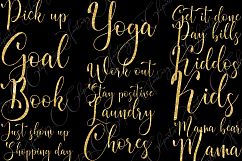 Pick up
Goal
Book
Just show up
Shopping day
Yoga
Work out
Stay positive
Laundry
Chores
Get it done
Pay bills
Kiddos
Kids
Mama bear
Mama